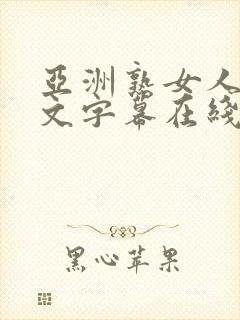 亞洲熟女人
文字幕在綫
黑心苹果